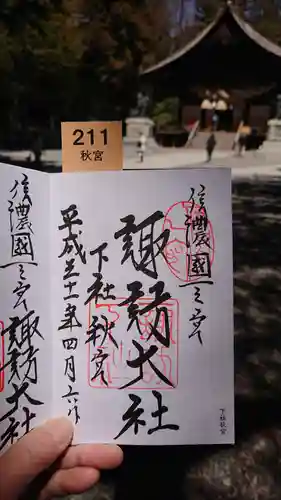 211
秋宮
信濃國一之宮
諏訪大社
下社秋宮
平成三十一年四月六日
下社秋宮
信濃國一之宮
諏訪大社